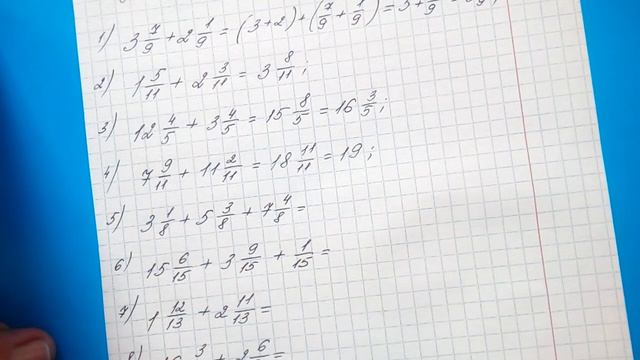 1) 3 7/9 + 2 1/9 = (3+2) + (7/9 + 1/9) = 5
2) 1 5/11 + 2 3/11 = 3 8/11;
3) 12 4/5 + 3 4/5 = 15 8/5 = 16 3/5;
4) 7 9/11 + 11 2/11 = 18 11/11 = 19;
5) 3 1/8 + 5 3/8 + 7 4/8 =
6) 15 6/15 + 3 9/15 + 1/15 =
7) 1 12/13 + 2 11/13 =
8)